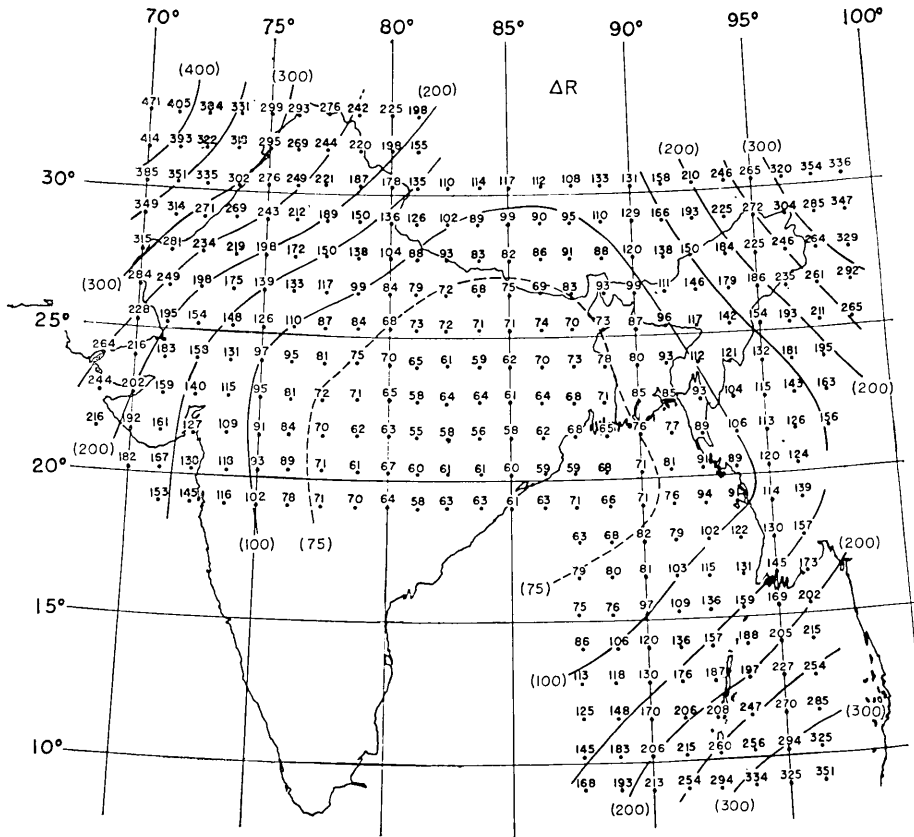 70° 75° 80° 85° 90° 95° 100°
(400) (300) (200) ΔR
471 405 384 331 299 293 276 242 225 198
414 393 322 313 295 269 244 220 198 155 (200) (300)
30° 385 351 335 302 276 249 221 187 178 135 110 114 117 112 108 133 131 158 210 246 265 320 354 336
349 314 271 269 243 212 189 150 136 126 102 89 99 90 95 110 129 166 193 225 272 304 285 347
315 281 234 219 198 172 150 138 104 88 93 83 82 86 91 88 120 138 150 184 225 246 264 329
(300) 284 249 198 175 139 133 117 99 84 79 72 68 75 69 83 93 99 111 146 179 186 235 261 292
25° 228 195 154 148 126 110 87 84 68 73 72 71 71 74 70 73 87 96 117 142 154 193 211 265
264 216 183 158 131 97 95 81 75 70 65 61 59 62 70 73 78 80 93 112 121 132 181 195
244 202 159 140 115 95 81 72 71 65 58 64 64 61 64 68 71 85 85 93 104 115 143 163 (200)
216 192 161 127 109 91 84 70 62 63 55 58 56 58 62 68 65 76 77 89 106 113 126 156
(200)
20° 182 167 130 113 93 89 71 61 67 60 61 61 60 59 59 68 71 81 91 89 120 124
153 145 116 102 78 71 70 64 58 63 63 61 63 71 66 71 76 94 114 139
(100) (75) 63 68 82 79 102 122 130 157 (200)
(75) 79 80 81 103 115 131 145 173
15° 75 76 97 109 136 159 169 202
86 106 120 136 157 188 205 215
(100) 113 118 130 176 187 197 227 254
125 148 170 206 208 247 270 285 (300)
10° 145 183 206 215 260 256 294 325
168 193 213 254 294 334 325 351
(200) (300)